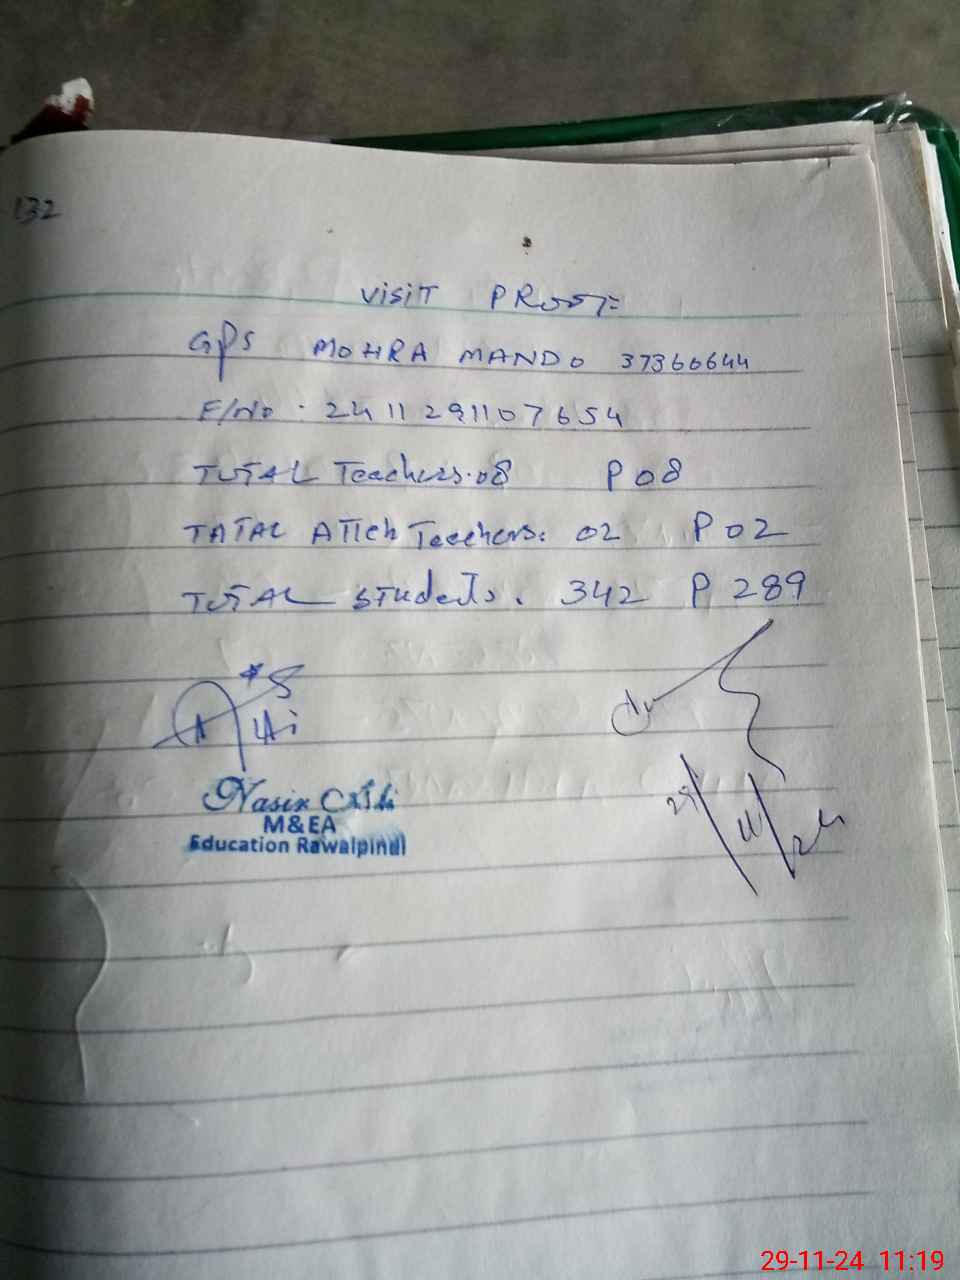 132
VISIT PROOF
GPS MOHRA MANDO 37360644
F/No : 2411291107654
TOTAL Teachers. 08 P 08
TATAL ATTch Teachers: 02 P 02
TOTAL Students. 342 P 289
Nasir
M&EA
Education Rawalpindi
29/11/24
29-11-24 11:19